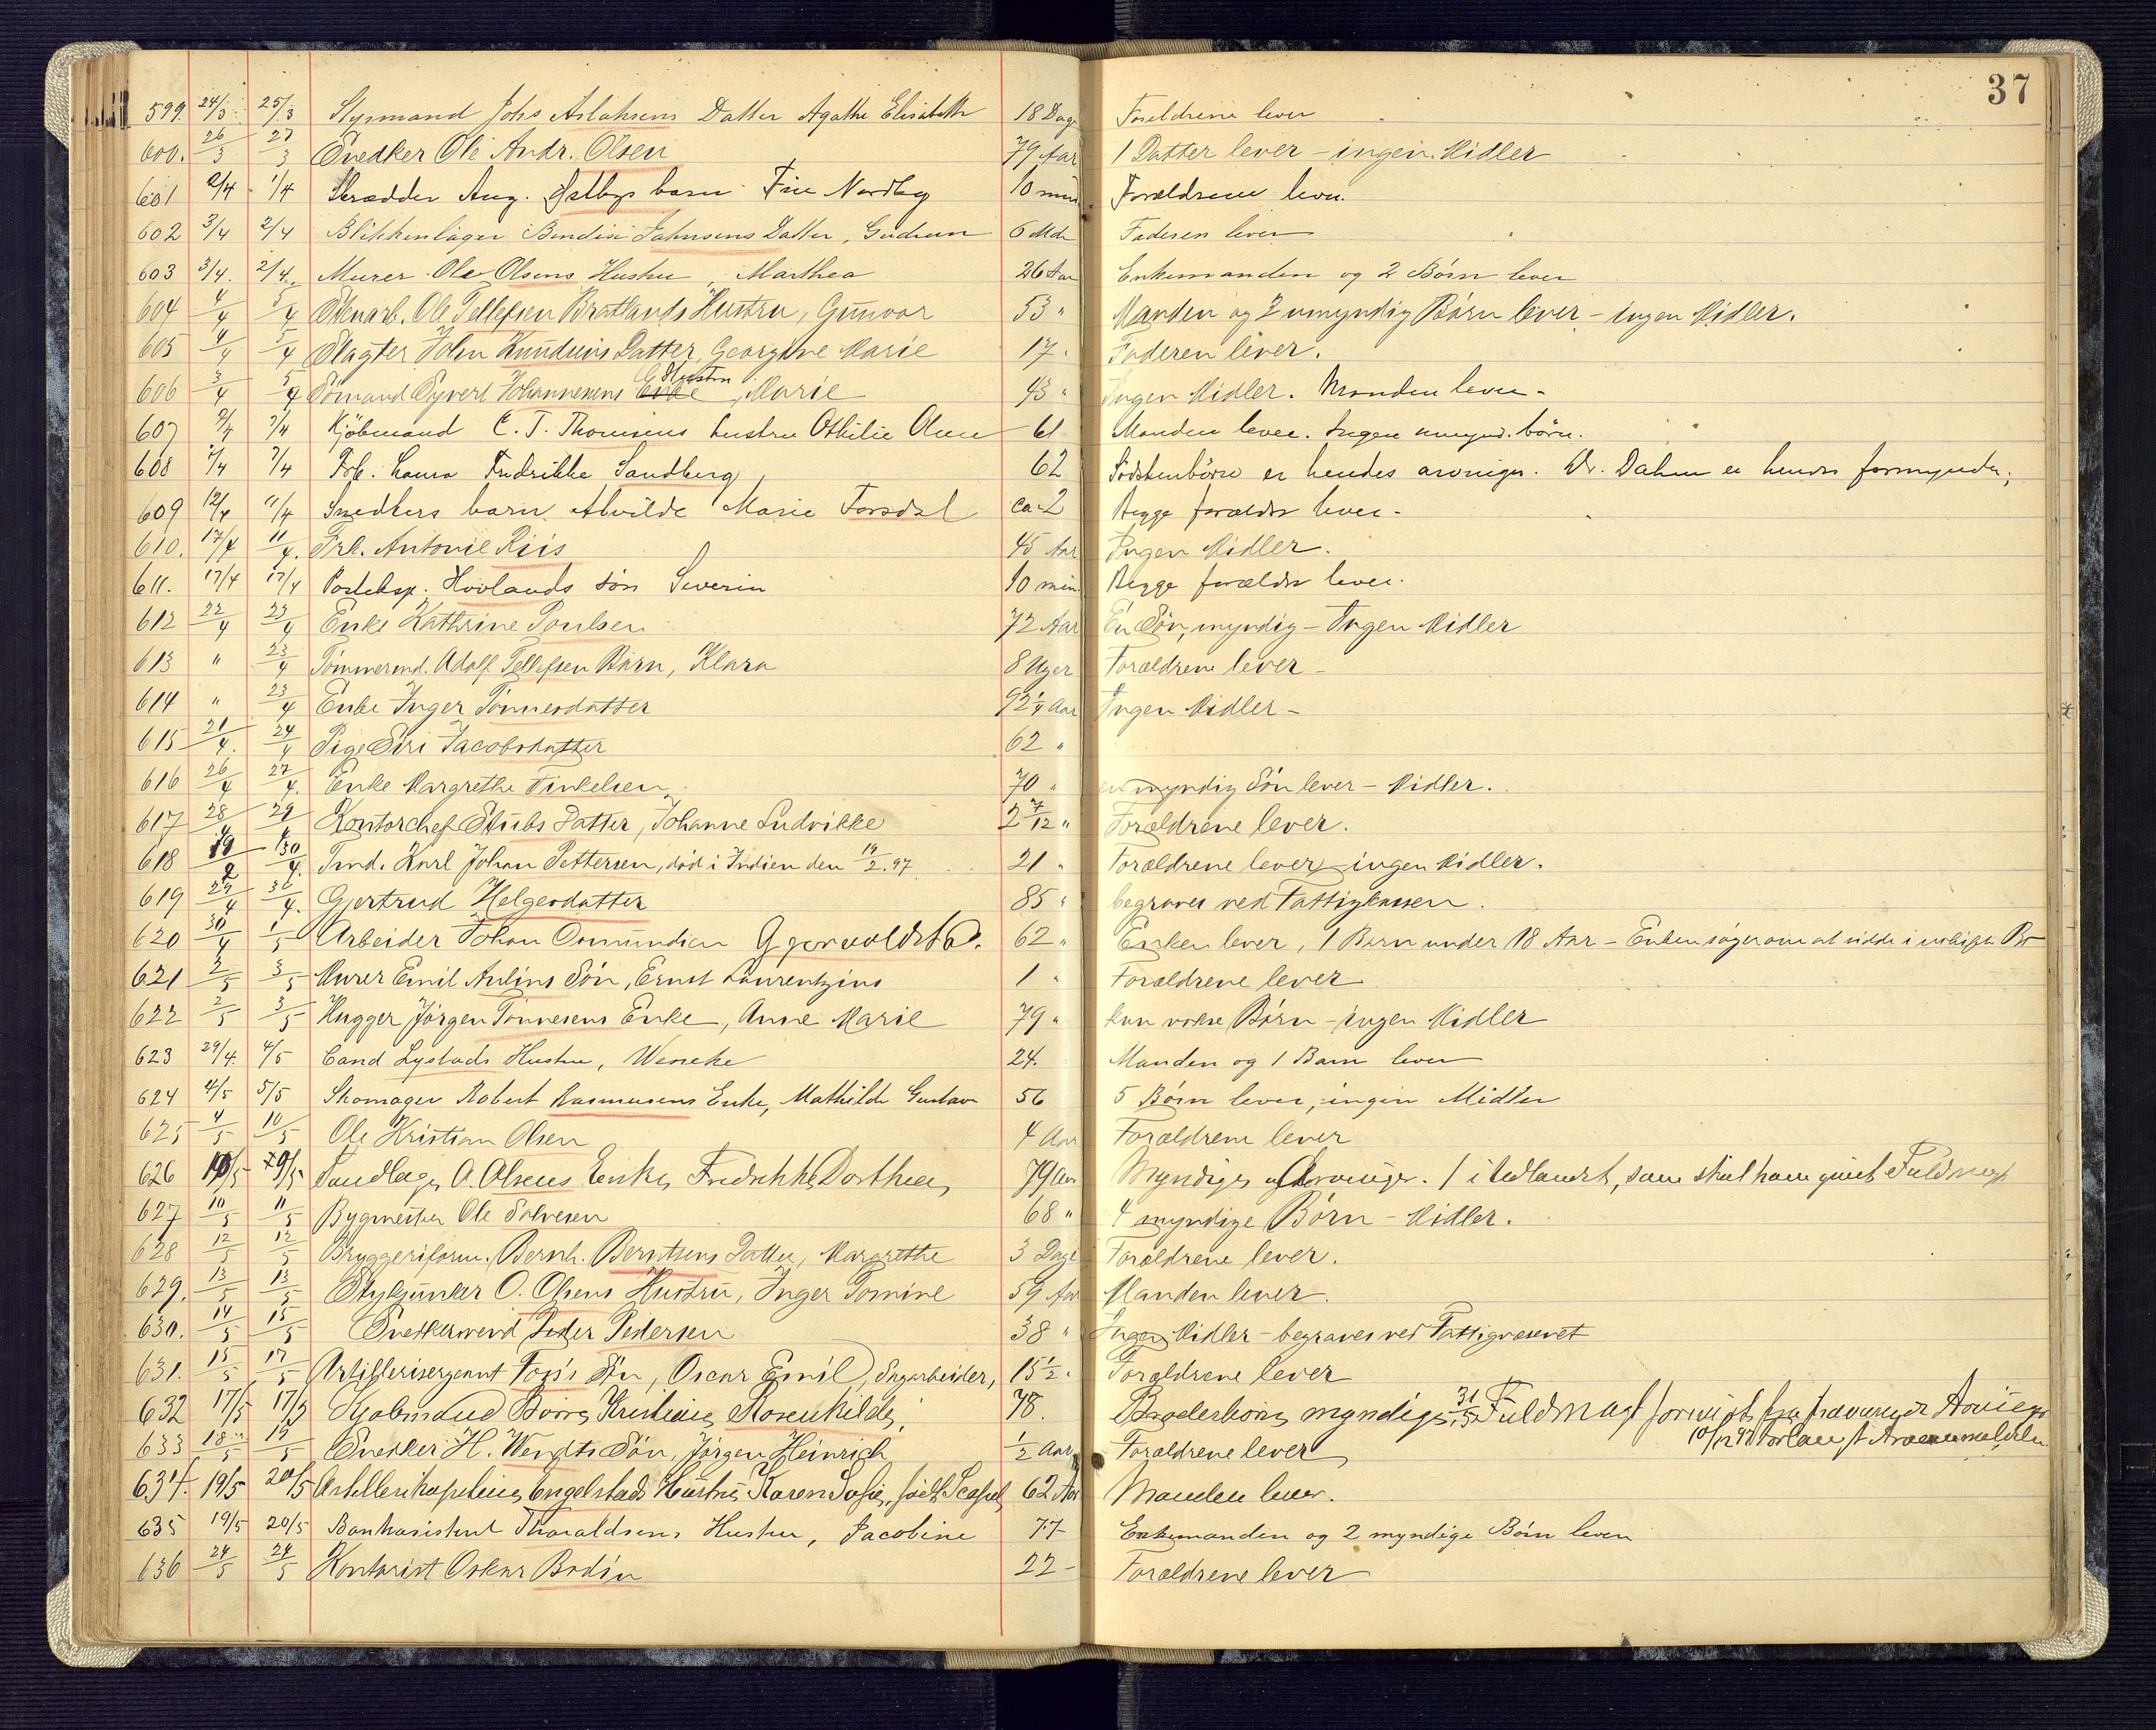 37
599. 24/3 25/3 Styrmand Johs Aslaksens Datter Agathe Elisabeth 18 Dage Forældrene lever
600. 26/3 27/3 Snedker Ole Andr. Olsen 79 Aar 1 Datter lever - ingen Midler
601 2/4 1/4 Skrædder Aug. barn 10 min Forældrene lever.
602 3/4 2/4 Blikkenslager Jahnsens Datter, Gudrun 6 Mdr Faderen lever
603 3/4. 2/4. Murer Ole Olsens Hustru, Marthea 26 Aar Enkemanden og 2 Børn lever
604 4/4 5/4 Ole Tellefsen Bratlands Hustru, Gunvor 53 " Manden og 2 umyndig Børn lever - ingen Midler.
605 4/4 5/4 Slagter John Knudsens Datter, Georgine Marie 17 " Faderen lever.
606 3/4 5/4 Sømand Syvert Johannesens Hustru, Marie 43 " Ingen Midler. Manden lever.
607 7/4 Kjøbmand C. T. Thomsens hustru Othilie Olene 61 Manden lever. Ingen umynd. børn.
608 7/4 7/4 Frk. Laura Fredrikke Sandberg 62 Sødskenbørn er hendes arvinger. Dr. Dahm er hendes formynder.
609 12/4 11/4 Snedkers barn Alvilde Marie Forsdal ca. 2 Begge forældre lever.
610. 17/4 11/4. Frk. Antonie Riis 45 Aar Ingen Midler.
611. 17/4 17/4 Posteksp. Hovlands søn Severin 10 min. Begge forældre lever.
612 22/4 23/4 Enke Kathrine Poulsen 72 Aar En Søn, myndig - Ingen Midler
613 " 23/4 Tømmermd. Adolf Tellefsen Barn, Klara 8 Uger Forældrene lever
614 " 23/4 Enke Inger Tønnesdatter 92 1/4 Aar Ingen Midler -
615 21/4. 24/4 Pige Siri Jacobsdatter 62 "
616 26/4 27/4. Enke Margrethe Finkelsen 70 " en myndig Søn lever - Midler.
617 28/4 29/4 Kontorchef Stubs Datter, Johanne Ludvikke 2 7/12 " Forældrene lever.
618 19/2 30/4. Tmd. Karl Johan Pettersen, død i Indien den 19/2.97 21 " Forældrene lever, ingen Midler.
619 29/4 30/4. Gjertrud Helgesdatter 85 " begraves ved Fattigkassen.
620 30/4 1/5 Arbeider Johan Osmundsen 62 " Enken lever, 1 Barn under 18 Aar - Enken søger om at sidde i uskiftet Bo
621 2/5 3/5 Murer Emil Aulins Søn, Ernst Laurentzius 1 " Forældrene lever
622 2/5 3/5 Hugger Jørgen Tønnesens Enke, Anne Marie 79 " kun voksne Børn - ingen Midler
623 29/4. 4/5 Cand Lystads Hustru, Wencke 24. Manden og 1 Barn lever
624 4/5 5/5 Skomager Robert Rasmussens Enke, Mathilde Gustava 56 5 Børn lever, ingen Midler
625 4/5 10/5 Ole Kristian Olsen 4 Aar Forældrene lever
626 O. Olsens Enke, Fredrikke Dorthea, 79 Aar Myndige Arvinger. 1 i Udlandet, som skal have givet Fuldmagt
627 10/5 11/5 Bygmester Ole Salvesen 68 " 4 myndige Børn - Midler.
628 12/5 12/5 Bryggeriform. Bernh. Berntsens Datter, Margrethe 3 Dage Forældrene lever.
629. 13/5 13/5 Stykjunker O. Olsens Hustru, Inger Tomine 59 Aar Manden lever.
630. 14/5 15/5 Snedkersvend Peder Pedersen 38 " Ingen Midler - begraves ved Fattigvæsenet
631. 15/5 17/5 Artillerisergeant Foss's Søn, Oscar Emil, Sagarbeider, 15 1/2 " Forældrene lever
632 17/5 17/5 Kjøbmand Børre Rosenkilde, 78. Broderbørn, myndige, 31/5 Fuldmagt fra Arvinger
10/12 97
633 18/5 19/5 Snedker H. Wendts Søn, Jørgen Heinrich 1/2 Aar Forældrene lever
634. 19/5 20/5 Artillerikaptein Engelstads Hustru Karen Sofie, født 62 Aar Manden lever.
635 19/5 20/5 Bankasistent Thoraldsens Hustru, Jacobine 77 Enkemanden og 2 myndige Børn lever
636 24/5 24/5 Kontorist Oskar Bodin 22 - Forældrene lever